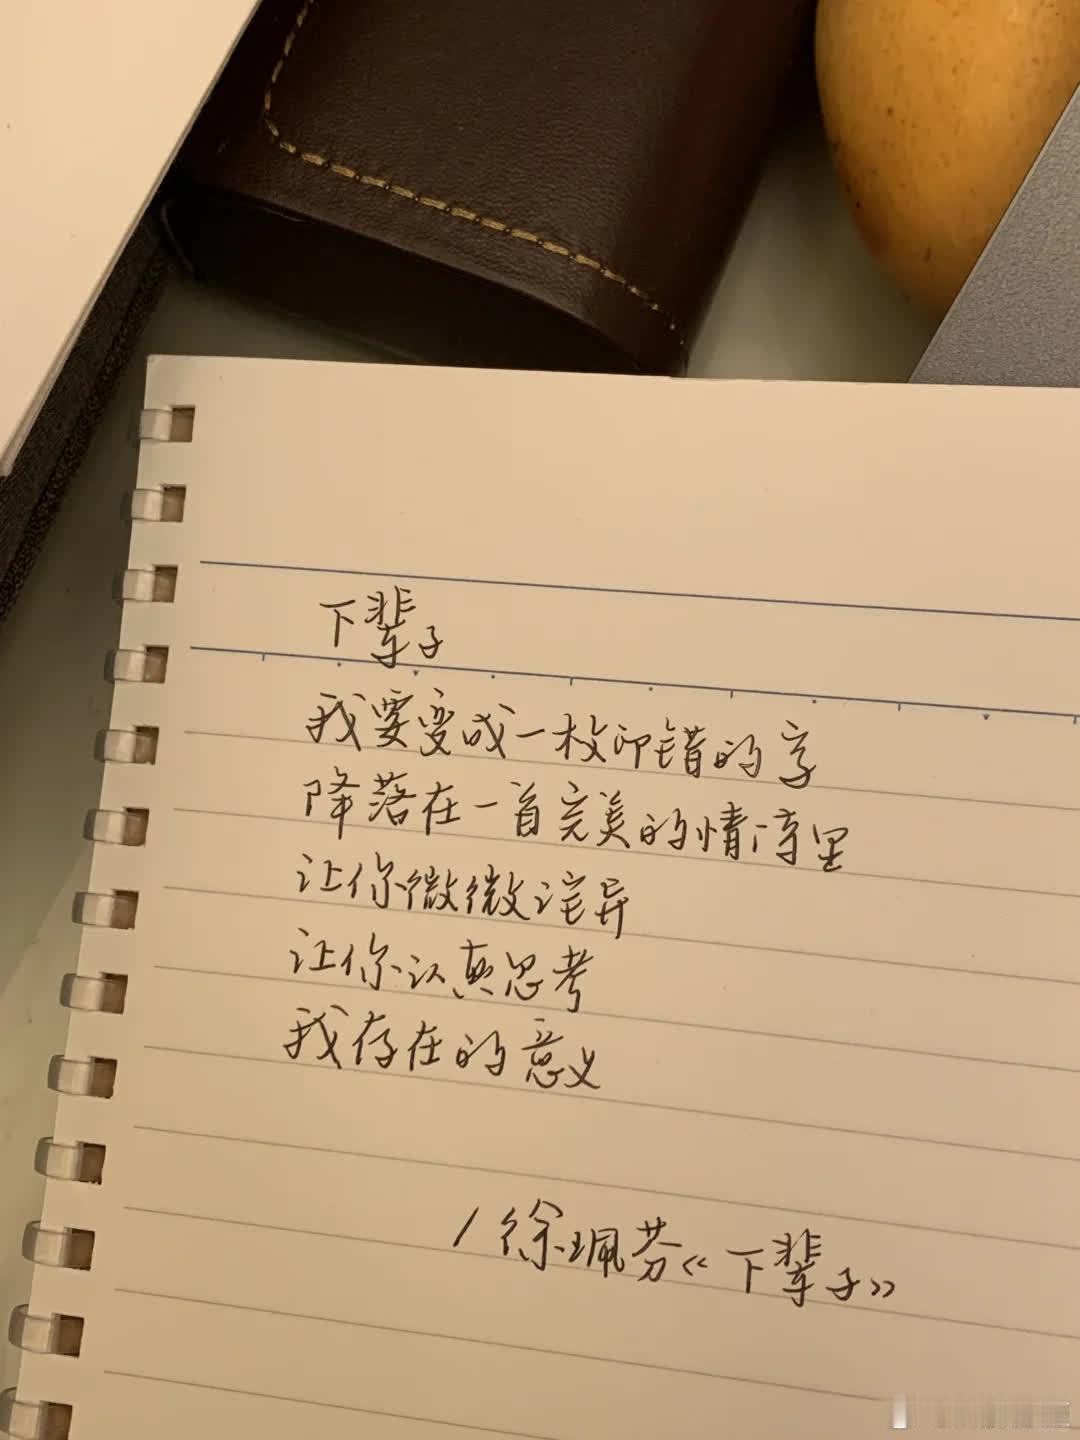 下辈子
我要变成一枚印错的字
降落在一首完美的情诗里
让你微微诧异
让你认真思考
我存在的意义
/徐珮芬《下辈子》